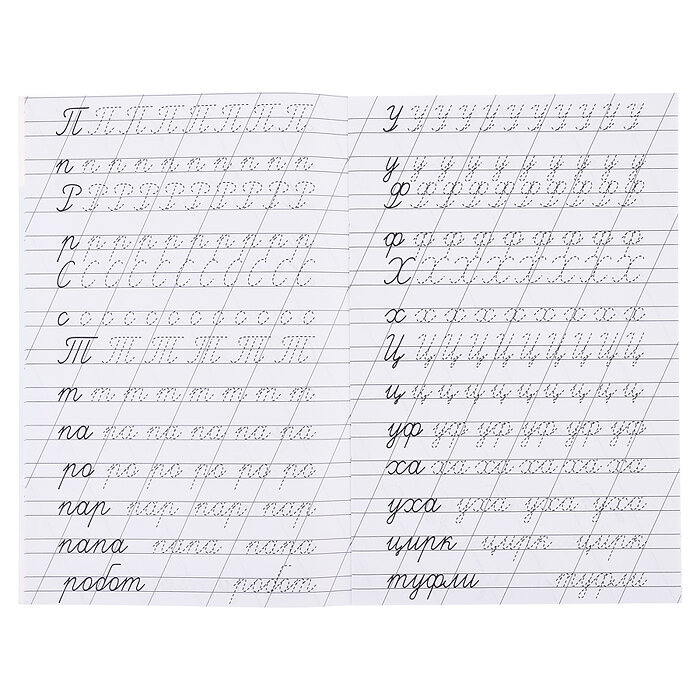 П П П П П П П П
п п п п п п п п п п
Р Р Р Р Р Р Р Р Р Р
р р р р р р р р р р
С С С С С С С С С С С
с с с с с с с с с с с
Т Т Т Т Т Т
т т т т т т т т
па па па па па па
ро ро ро ро ро ро
пар пар пар пар
папа папа папа
робот робот
У У У У У У У У У У У
у у у у у у у у у у
Ф Ф Ф Ф Ф Ф Ф Ф Ф Ф
ф ф ф ф ф ф ф ф ф
Х Х Х Х Х Х Х Х Х
х х х х х х х х х
Ц Ц Ц Ц Ц Ц Ц Ц Ц Ц
ц ц ц ц ц ц ц ц ц ц
уф уф уф уф уф уф
ха ха ха ха ха ха
уха уха уха уха
цирк цирк цирк
туфли туфли